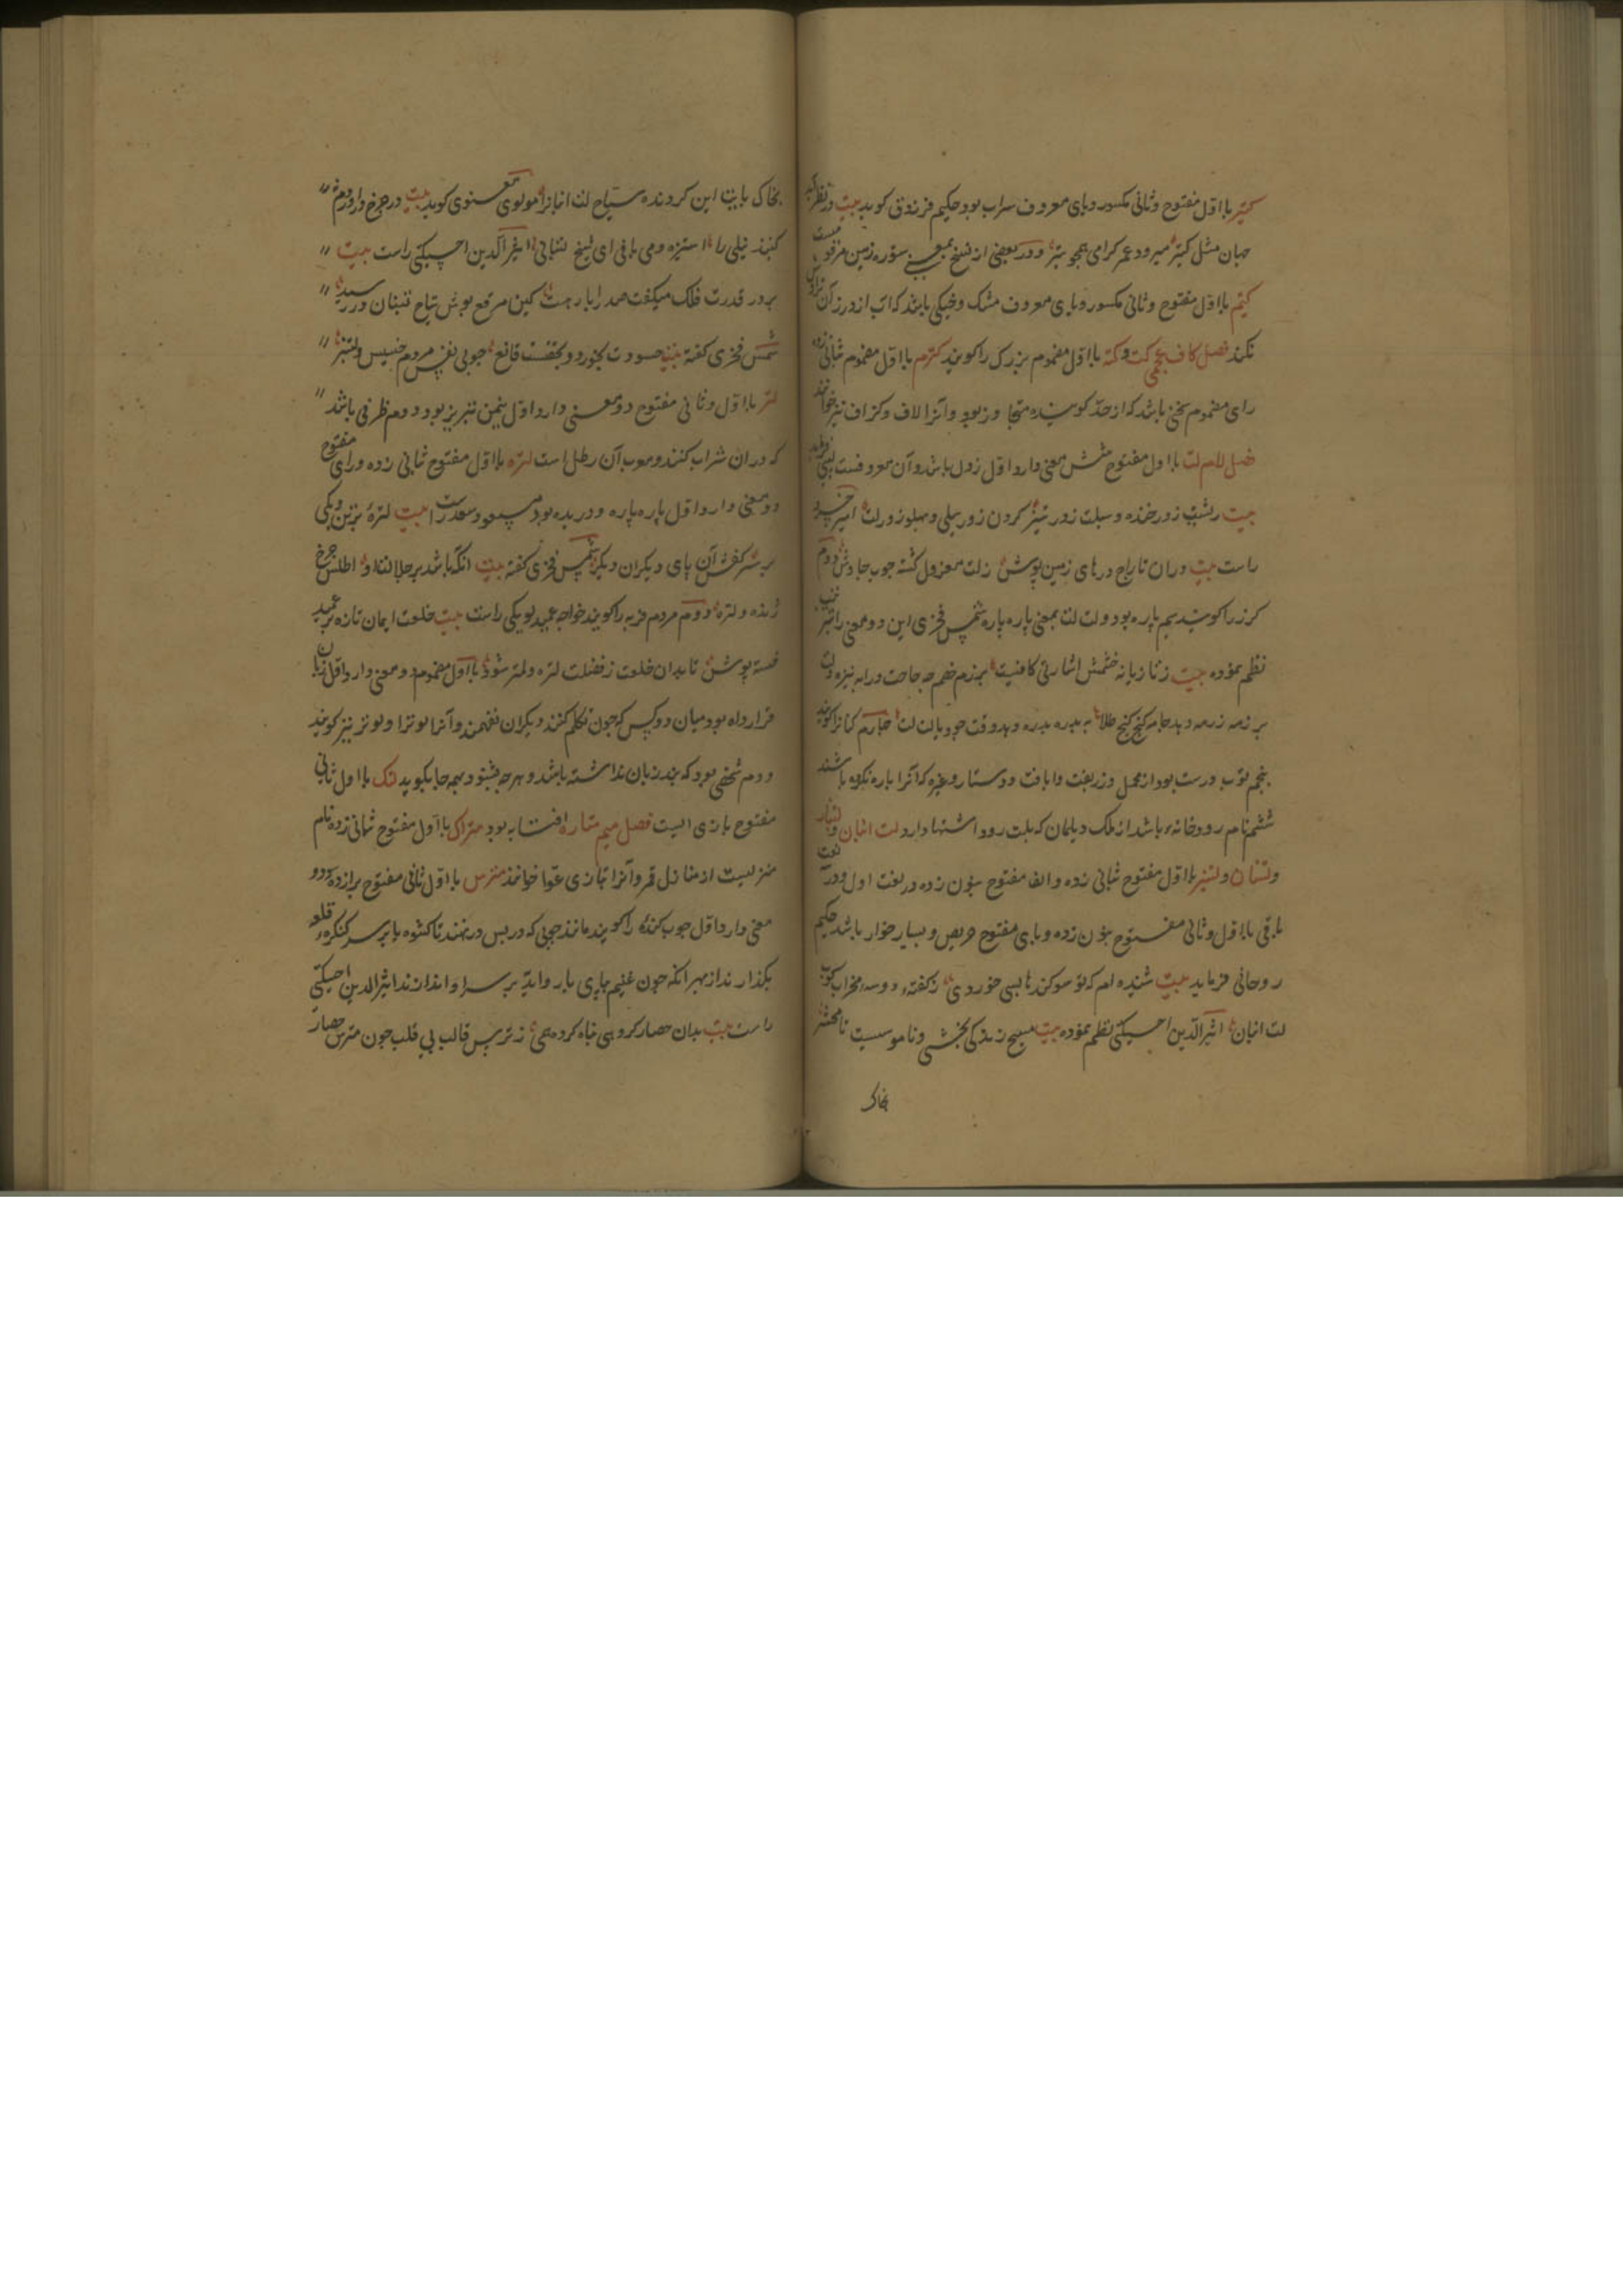 کتیر با اول مفتوح و ثانی مکسور و یای معروف سراب بود حکیم فرزدق کوید بیت در نظر
جهان مثل کتیر میرود عمر کرامی همجو تیر و در بعضی از نسخ بمعنی شوره زمین مرقو مست
کتیم با اول مفتوح و ثانی مکسور و یای معروف مشک و خیکی باشد که اب از درز آن تراوش
نکند فصل کاف عجمی کت و کته با اول مضموم بزرک را کویند کترم با اول مضموم ثانی زده
رای مضموم سخنی باشد که از حد کوینده متجاوز بود و آنرا لاف و کزاف نیز خوانند
فصل لام لت با اول مفتوح شش معنی دارد اول زدن باشد و آن معروفست
بیت ریشت زدر خنده و سبلت زدر تیز کردن زدر سیلی و پهلو زدر لت امیر خسرو
راست بیت دران تاراج درهای زمین پوش زلت معزول کشته چوب جاوش دوم
کرز را کویند سیم پاره بود و لت لت بمعنی پاره پاره شمس فخری این دو معنی را
نظم نموده بیت زتازیانه خشمش اشارتی کافیست برزم خصم چه حاجت ورا به نیزه و لت
ببزمه زرمه دهد جامه کنج کنج طلا به بدره بدره دهد وقت جود یا لت لت چهارم کتانرا کویند
پنجم توب درست بود از مخمل و زربفت و بافت و دستار و غیره که آنرا پاره نکرده باشند
ششم نام رودخانه باشد از ملک دیلمان که بلت رود اشتهار دارد لت انبان و لتنبار
و لتنبان و لتنبر با اول مفتوح ثانی زده و الف مفتوح بنون زده در لغت اول و در
باقی با اول و ثانی مفتوح بنون زده و بای مفتوح حریص و بسیار خوار باشد حکیم
روحانی فرماید بیت شنیده ام که تو سوکندها بسی خوردی
لت انبان اثیر الدین اخسیکتی نظم نموده بیت مسیح زندکی بخشی و ناموسیست تا محشر
بخاک
بخاک پایت این کردنده سیاح لت انبانرا مولوی معنوی کوید بیت در چرخ دراورد
کنبد نیلی را استیزه و می بافی ای شیخ لتنبانی اثیر الدین اخسیکتی راست بیت
بدور قدرت فلک میکفت صد را بار هست کین مرقع پوش سیاح لتنبان در رسید
شمس فخری کفته بیت حسودت بخورد و بخفتست قانع چو بی نفس مردم خسیس و لتنبر
لتر با اول و ثانی مفتوح دو معنی دارد اول نیمن تبریز بود دوم ظرفی باشد
که دران شراب کنند و معرب آن رطل است لتره با اول مفتوح ثانی زده و رای مفتوح
دو معنی دارد اول پاره پاره و دریده بود مسعود سعد راست بیت
بر سر کفش آن پای دیکران دیکر شمس فخری کفته بیت انکه باشد بر جلالتا او اطلس چرخ
ژنده و لتره دوم مردم فربه را کویند خواجه عمید لویکی راست بیت خلعت ایمان تازه بر عمید
خسته پوشش تا بدان خلعت زفضلت لتره و لمتر شود با اول مضموم دو معنی دارد اول زبان
قرارداده بود میان دو کس که جون تکلم کنند دیکران نفهمند و آنرا لوترا و لوتر نیز کویند
دوم شخصی بود که بند زبان نداشته باشد و هر چه بشنود همه جا بکوید لتک با اول ثانی
مفتوح بازی الیست فصل میم متاره افتابه بود متراک با اول مفتوح ثانی زده نام
منزلیست از منازل قمر و آنرا بتازی عوا خوانند مترس با اول ثانی مفتوح برا زده دو
معنی دارد اول جوب کنده را کویند مانند جمی که در پس در نهند تا کشوده یا بر سر کنکره قلعه
بکذارند از بهر انکه جون غنیم بپای باره واید بر سر او اندازند اثیر الدین اخسیکتی
راست بیت بدان حصار کروهی پناه کرده همی زترس قالب بی قلب جون مترس حصار